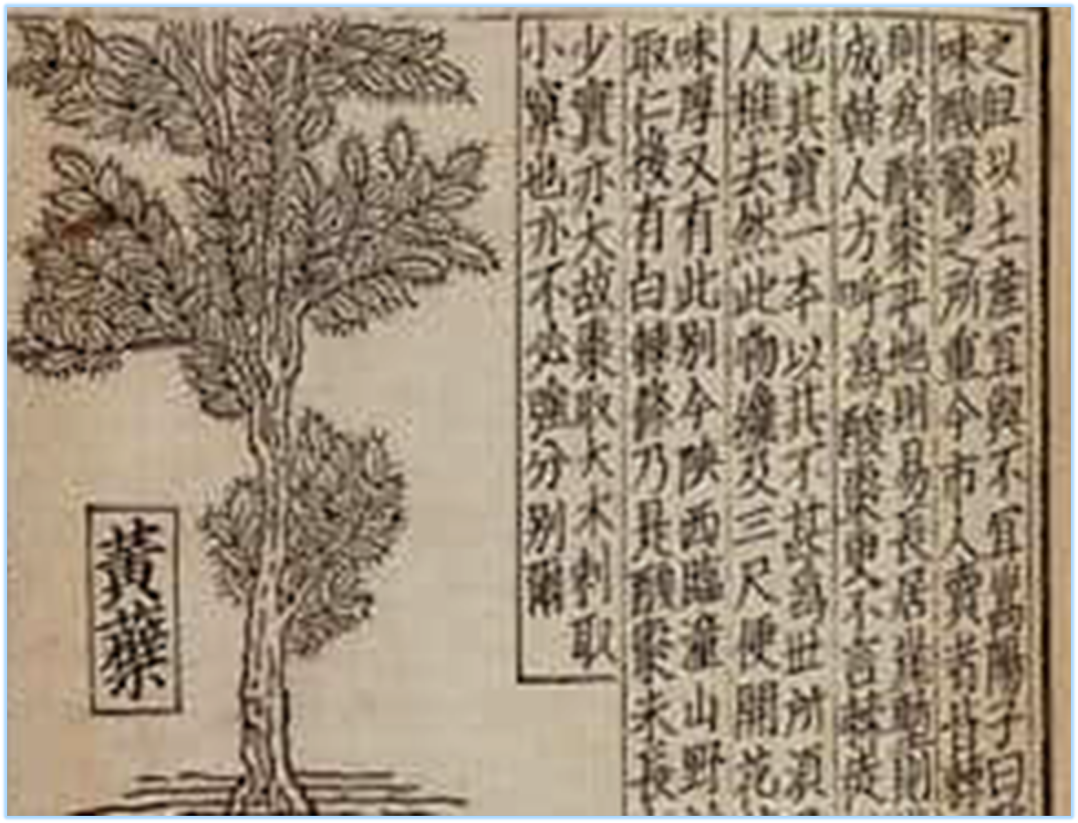 之且以土產宜與不宜嵩陽子曰
味酸醫之所重今市人賣者皆棘
則為酸棗平地則易長居崖塹則
成幹人方呼為酸棗更不言棘徒
也其實一本以其不甚為世所須
人樵去然此物纔及三尺便開花
味厚又有此別今陝西臨潼山野
取仁後有白棘條乃是酸棗未長
少實亦大故棗取大木刺取
小窠也亦不必強分別爾
黃蘗